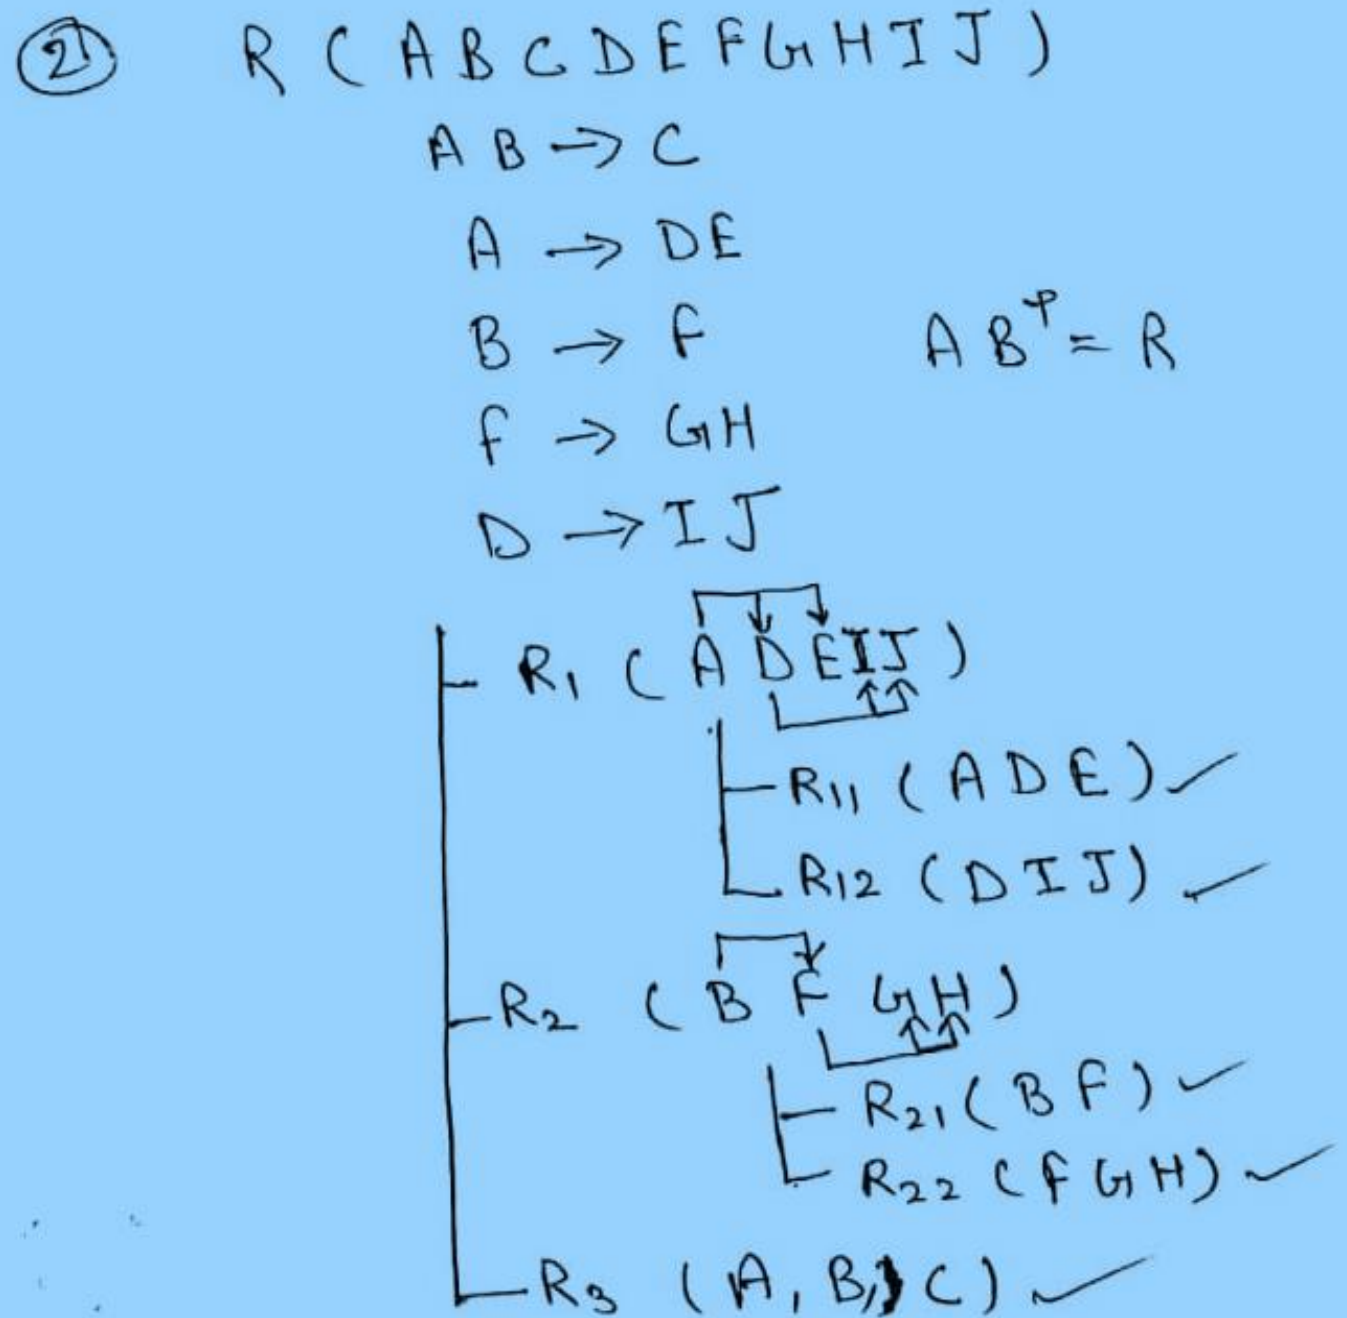 2) R ( A B C D E F G H I J )
A B → C
A → D E
B → F
A B⁺ = R
F → G H
D → I J
R₁ ( A D E I J )
R₁₁ ( A D E ) ✓
R₁₂ ( D I J ) ✓
R₂ ( B F G H )
R₂₁ ( B F ) ✓
R₂₂ ( F G H ) ✓
R₃ ( A, B, C ) ✓